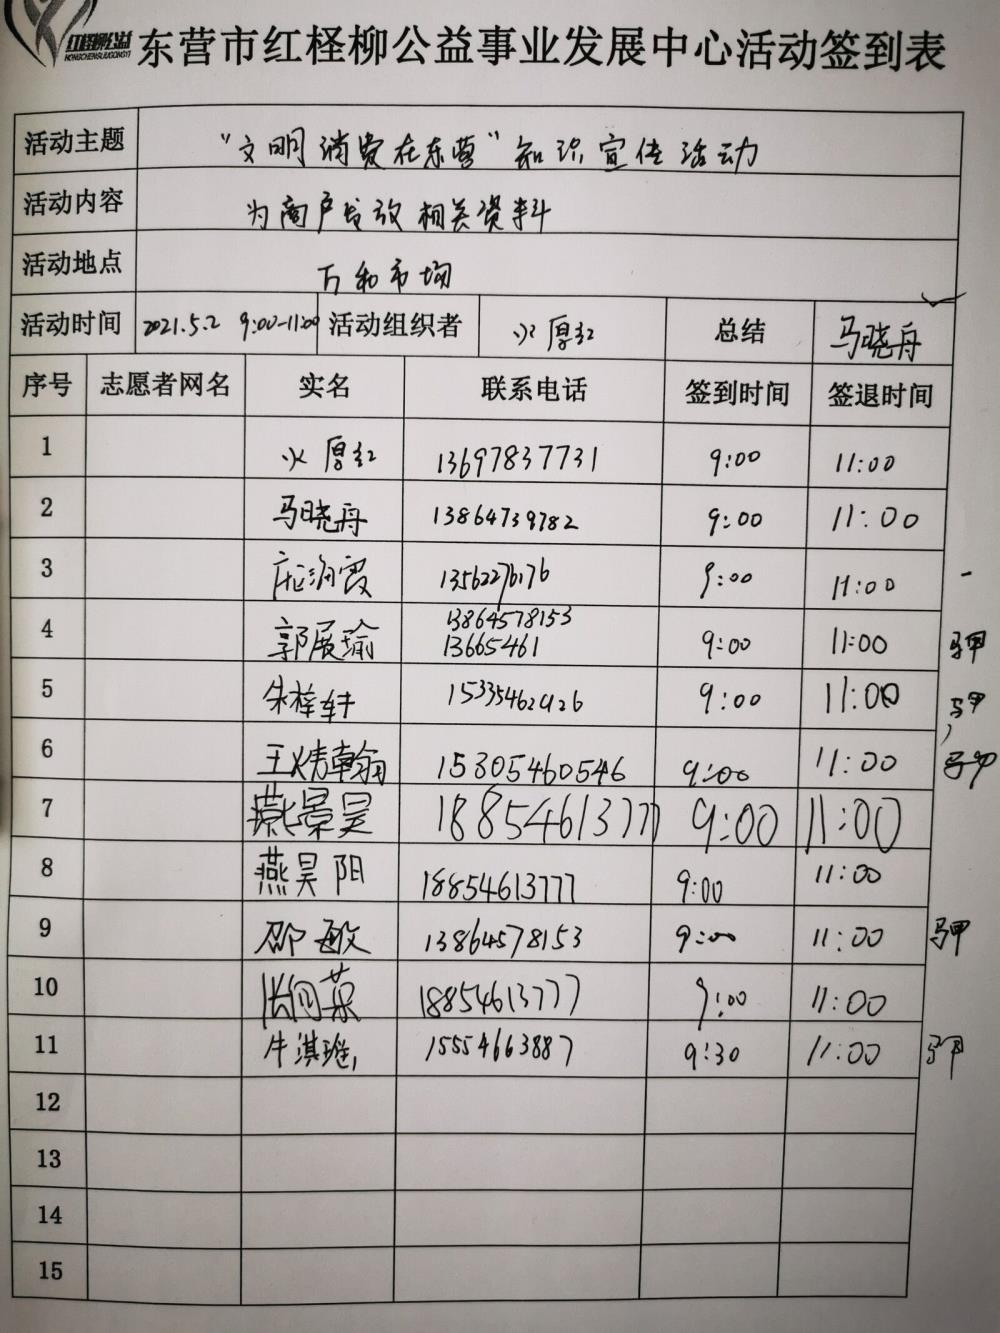 红柽柳公益
HONGCHENGLIUGONGYI
东营市红柽柳公益事业发展中心活动签到表
活动主题 “文明消费在东营”知识宣传活动
活动内容 为商户发放相关资料
活动地点 万和市场
活动时间 2021.5.2 9:00-11:00 活动组织者 火厚红 总结 马晓舟
序号 志愿者网名 实名 联系电话 签到时间 签退时间
1 火厚红 13697837731 9:00 11:00
2 马晓舟 13864739782 9:00 11:00
3 13562276176 9:00 11:00
13864578153
4 郭展瑜 13665461 9:00 11:00 马甲
5 朱梓轩 15335462926 9:00 11:00 马甲
6 王炜翰 15305460546 9:00 11:00 马甲
7 燕景昊 18854613777 9:00 11:00
8 燕昊阳 18854613777 9:00 11:00
9 邵敏 13864578153 9:00 11:00 马甲
10 18854613777 9:00 11:00
11 牛淇 15554663887 9:30 11:00 马甲
12
13
14
15